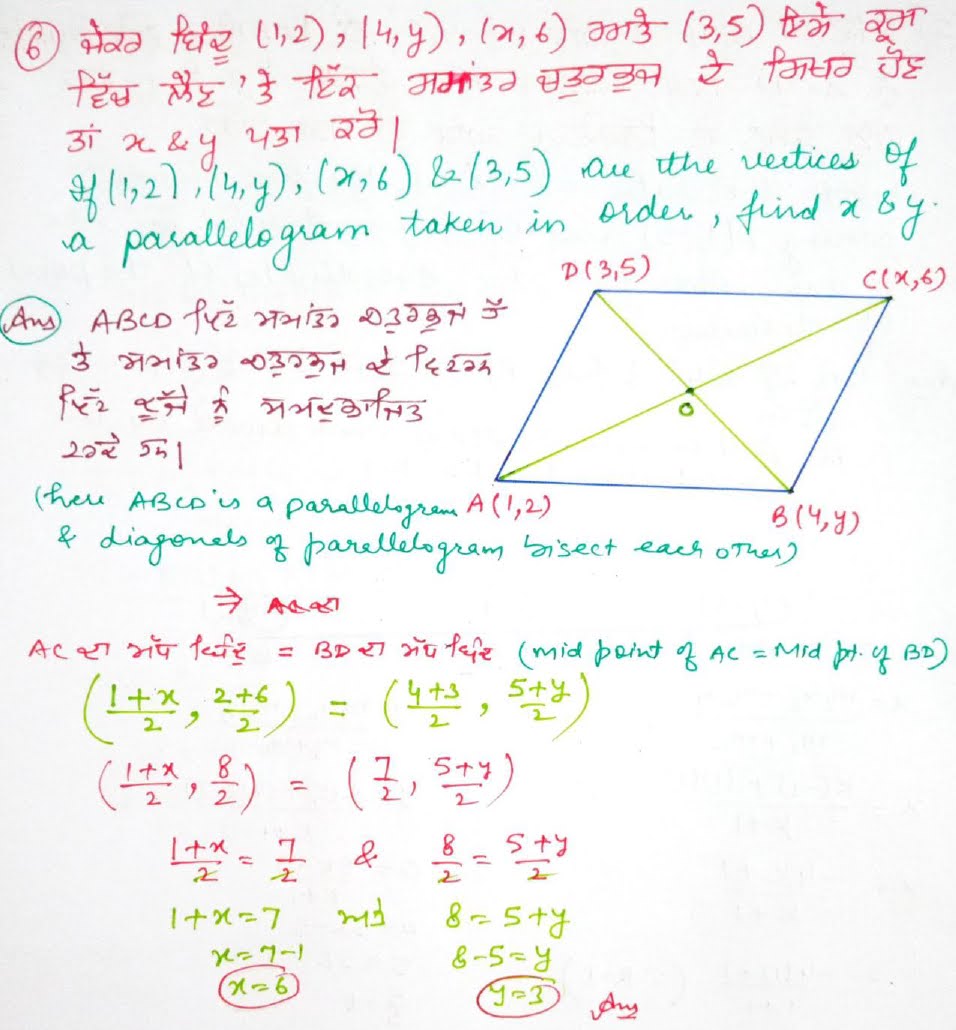 ⑥ ਜੇਕਰ ਬਿੰਦੂ (1,2), (4,y), (x,6) ਅਤੇ (3,5) ਇਸੇ ਕ੍ਰਮ
ਵਿੱਚ ਲੈਣ 'ਤੇ ਇੱਕ ਸਮਾਂਤਰ ਚਤੁਰਭੁਜ ਦੇ ਸਿਖਰ ਹੋਣ
ਤਾਂ x & y ਪਤਾ ਕਰੋ।
If (1,2), (4,y), (x,6) & (3,5) are the vertices of
a parallelogram taken in order, find x & y.
D(3,5)
C(x,6)
Ans ABCD ਇੱਕ ਸਮਾਂਤਰ ਚਤੁਰਭੁਜ ਹੈ
ਤੇ ਸਮਾਂਤਰ ਚਤੁਰਭੁਜ ਦੇ ਵਿਕਰਨ
ਇੱਕ ਦੂਜੇ ਨੂੰ ਸਮਦੁਭਾਜਿਤ
ਕਰਦੇ ਹਨ।
O
(here ABCD is a parallelogram A(1,2)
B(4,y)
& diagonals of parallelogram bisect each other)
⇒ AC ਦਾ
AC ਦਾ ਮੱਧ ਬਿੰਦੂ = BD ਦਾ ਮੱਧ ਬਿੰਦੂ (mid point of AC = Mid pt. of BD)
((1+x)/2, (2+6)/2) = ((4+3)/2, (5+y)/2)
((1+x)/2, 8/2) = (7/2, (5+y)/2)
(1+x)/2 = 7/2 & 8/2 = (5+y)/2
1+x=7 ਅਤੇ 8=5+y
x=7-1 8-5=y
x=6 y=3 Ans